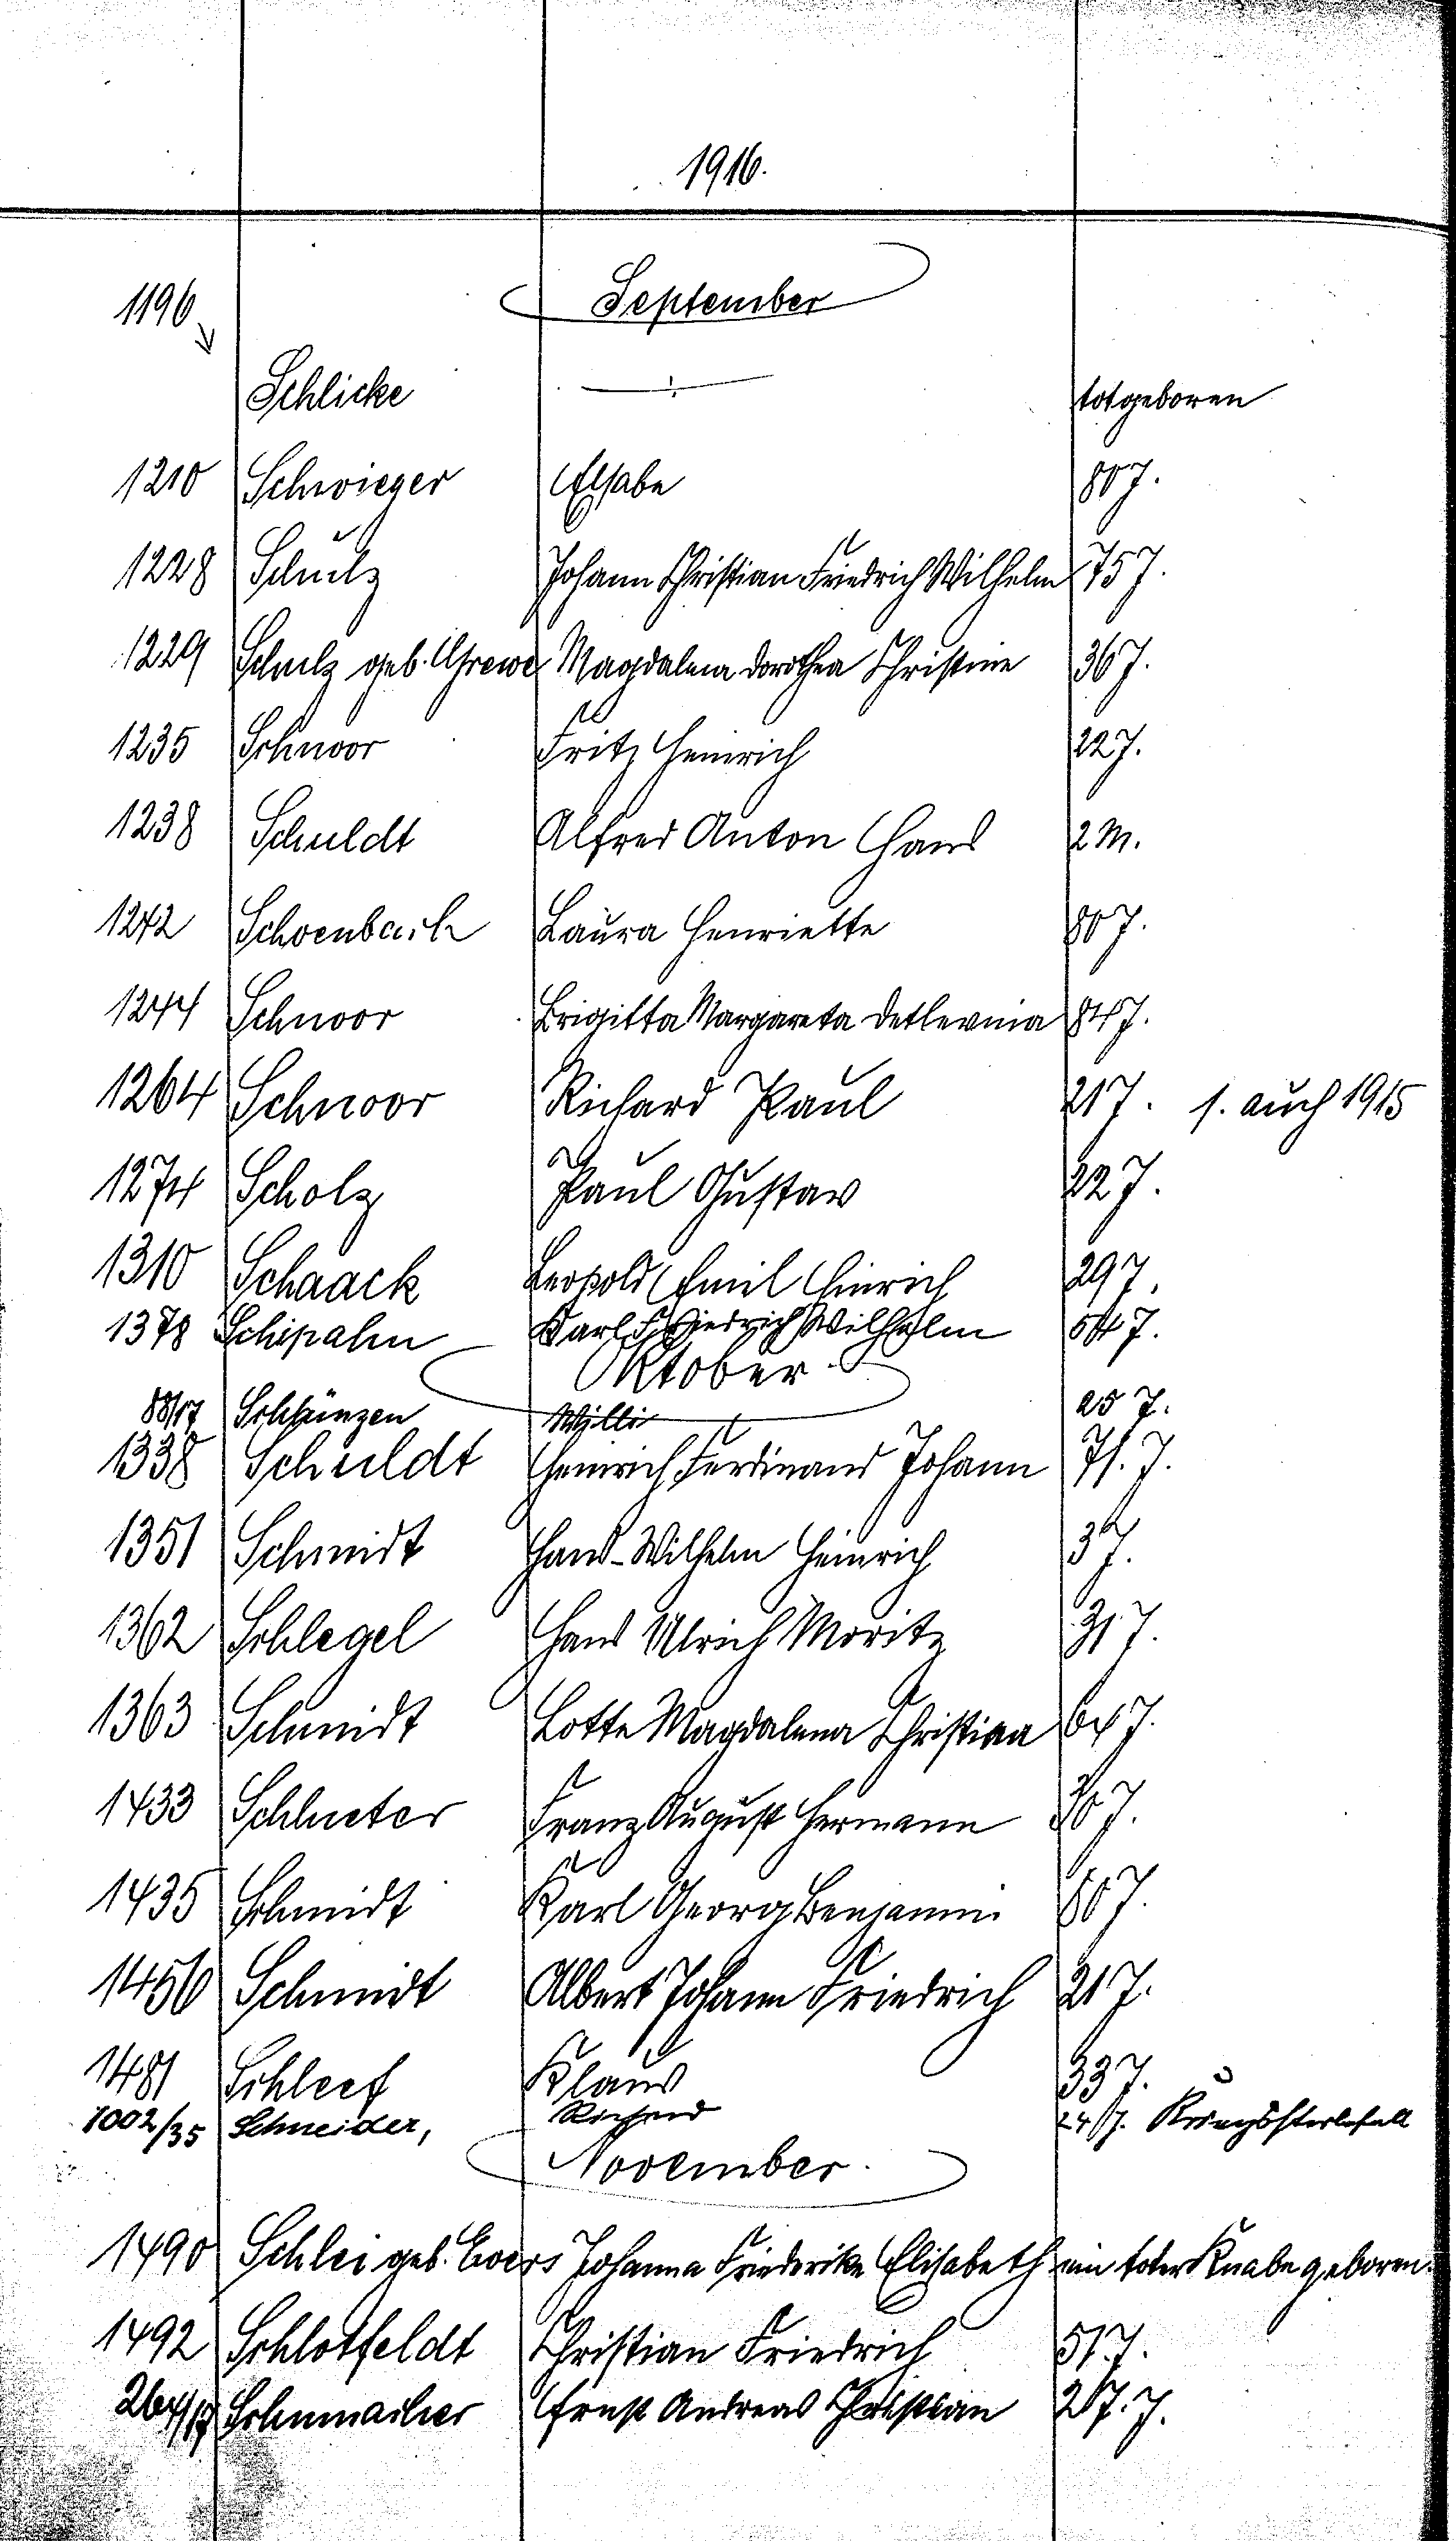 1916.
1196 September
Schlicke totgeboren
1210 Schwieger Elsabe 80 J.
1228 Schulz Johann Christian Friedrich Wilhelm 75 J.
1229 Schulz geb. Grewe Magdalena Dorothea Christine 36 J.
1235 Schnoor Fritz Heinrich 22 J.
1238 Schuldt Alfred Anton Hans 2 M.
1242 Schoenbach Laura Henriette 80 J.
1244 Schnoor Brigitta Margareta Detlevina 84 J.
1264 Schnoor Richard Paul 21 J. s. auch 1915
1274 Scholz Paul Gustav 22 J.
1310 Schaack Leopold Emil Hinrich 29 J.
1378 Schipalm Karl Friedrich Wilhelm 54 J.
Oktober
88/17 Schlünzen Willi 25 J.
1338 Schuldt Heinrich Ferdinand Johann 71. J.
1351 Schmidt Hans-Wilhelm Heinrich 3 J.
1362 Schlegel Hans Ulrich Moritz 31 J.
1363 Schmidt Lotte Magdalena Christina 64 J.
1433 Schlueter Franz August Hermann 36 J.
1435 Schmidt Karl Georg Benjamin 80 J.
1456 Schmidt Albert Johann Friedrich 21 J.
1481 Schleef Klaus 33 J.
1002/35 Schneider, Richard 24 J. Kriegssterbefall
November.
1490 Schlei geb. Evers Johanna Friederike Elisabeth ein toter Knabe geboren.
1492 Schlotfeldt Christian Friedrich 51 J.
264/17 Schumacher Ernst Andreas Christian 27. J.